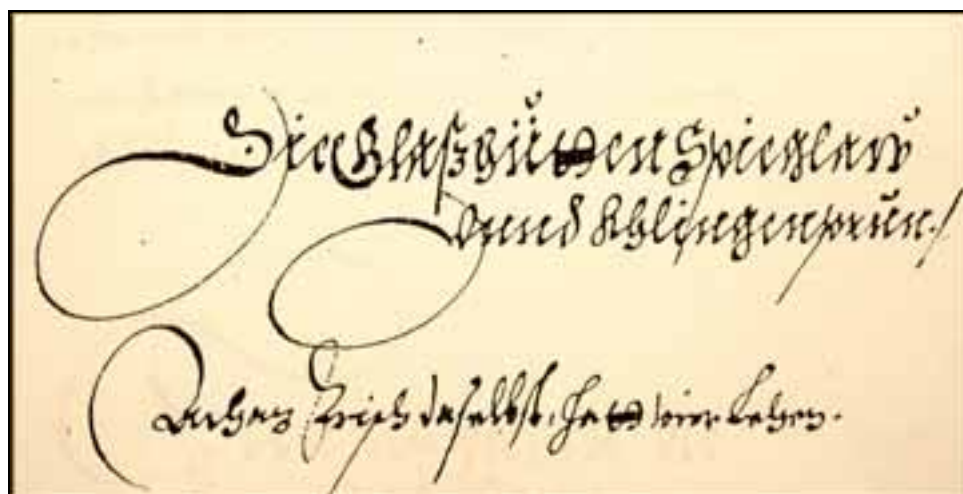 Die Glaßhütten Spieglaw
vnnd Khlingenprun./
Achaz Frisch daselbst, hatt vier Lehen.